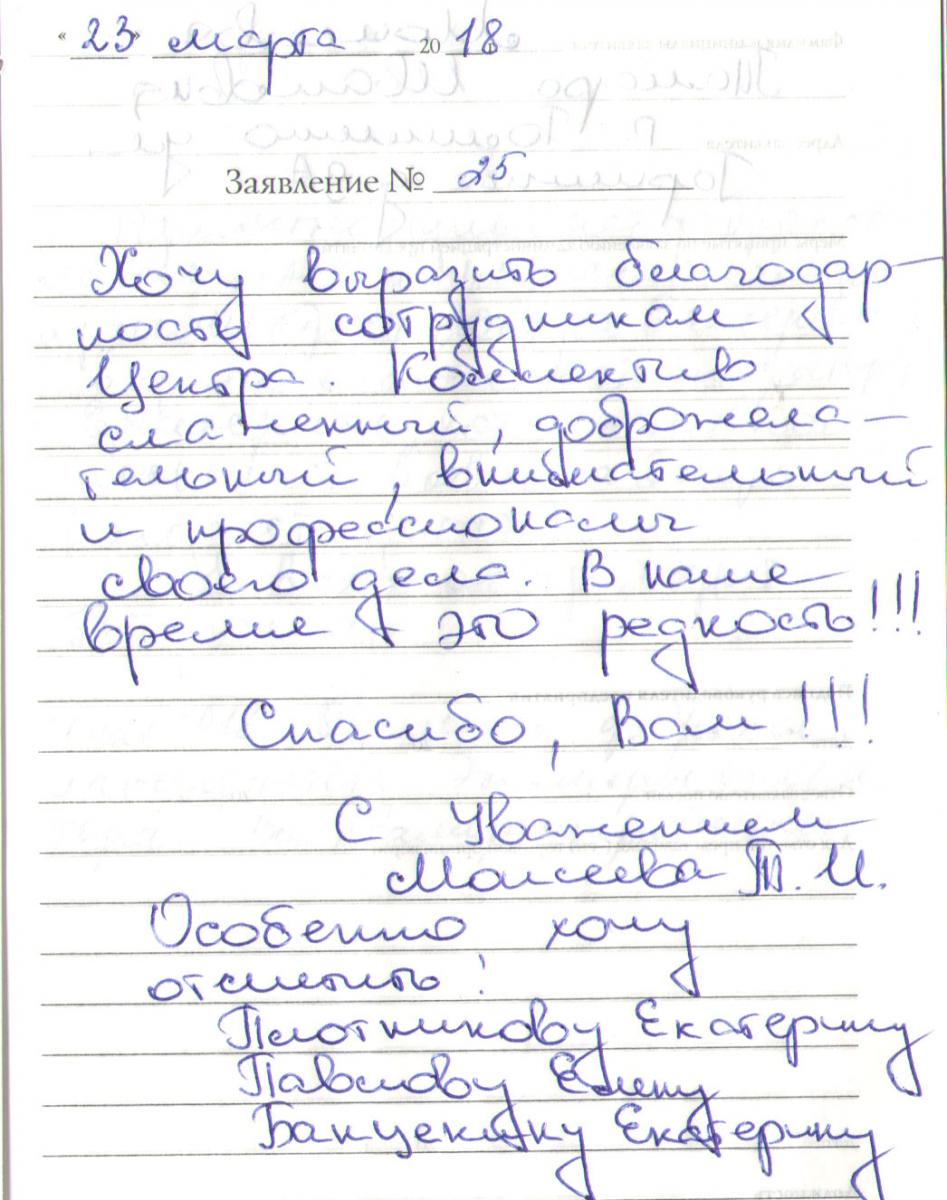 « 23 » марта 20 18
Заявление № 25
Хочу выразить благодар-
ность сотрудникам
Центра. Коллектив
слаженный, доброжела-
тельный, внимательный
и профессионалы
своего дела. В наше
время это редкость!!!
Спасибо, Вам!!!
С Уважением
Моисеева Т. И.
Особенно хочу
отметить!
Плотникову Екатерину
Павлову Елену
Екатерину